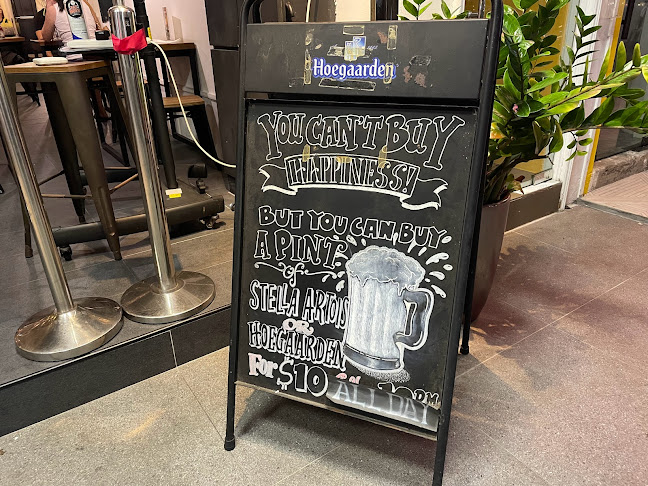 Hoegaarden
YOU CAN'T BUY
HAPPINESS!
BUT YOU CAN BUY
A PINT
of
STELLA ARTOIS
OR
HOEGAARDEN
For $10 ALL DAY